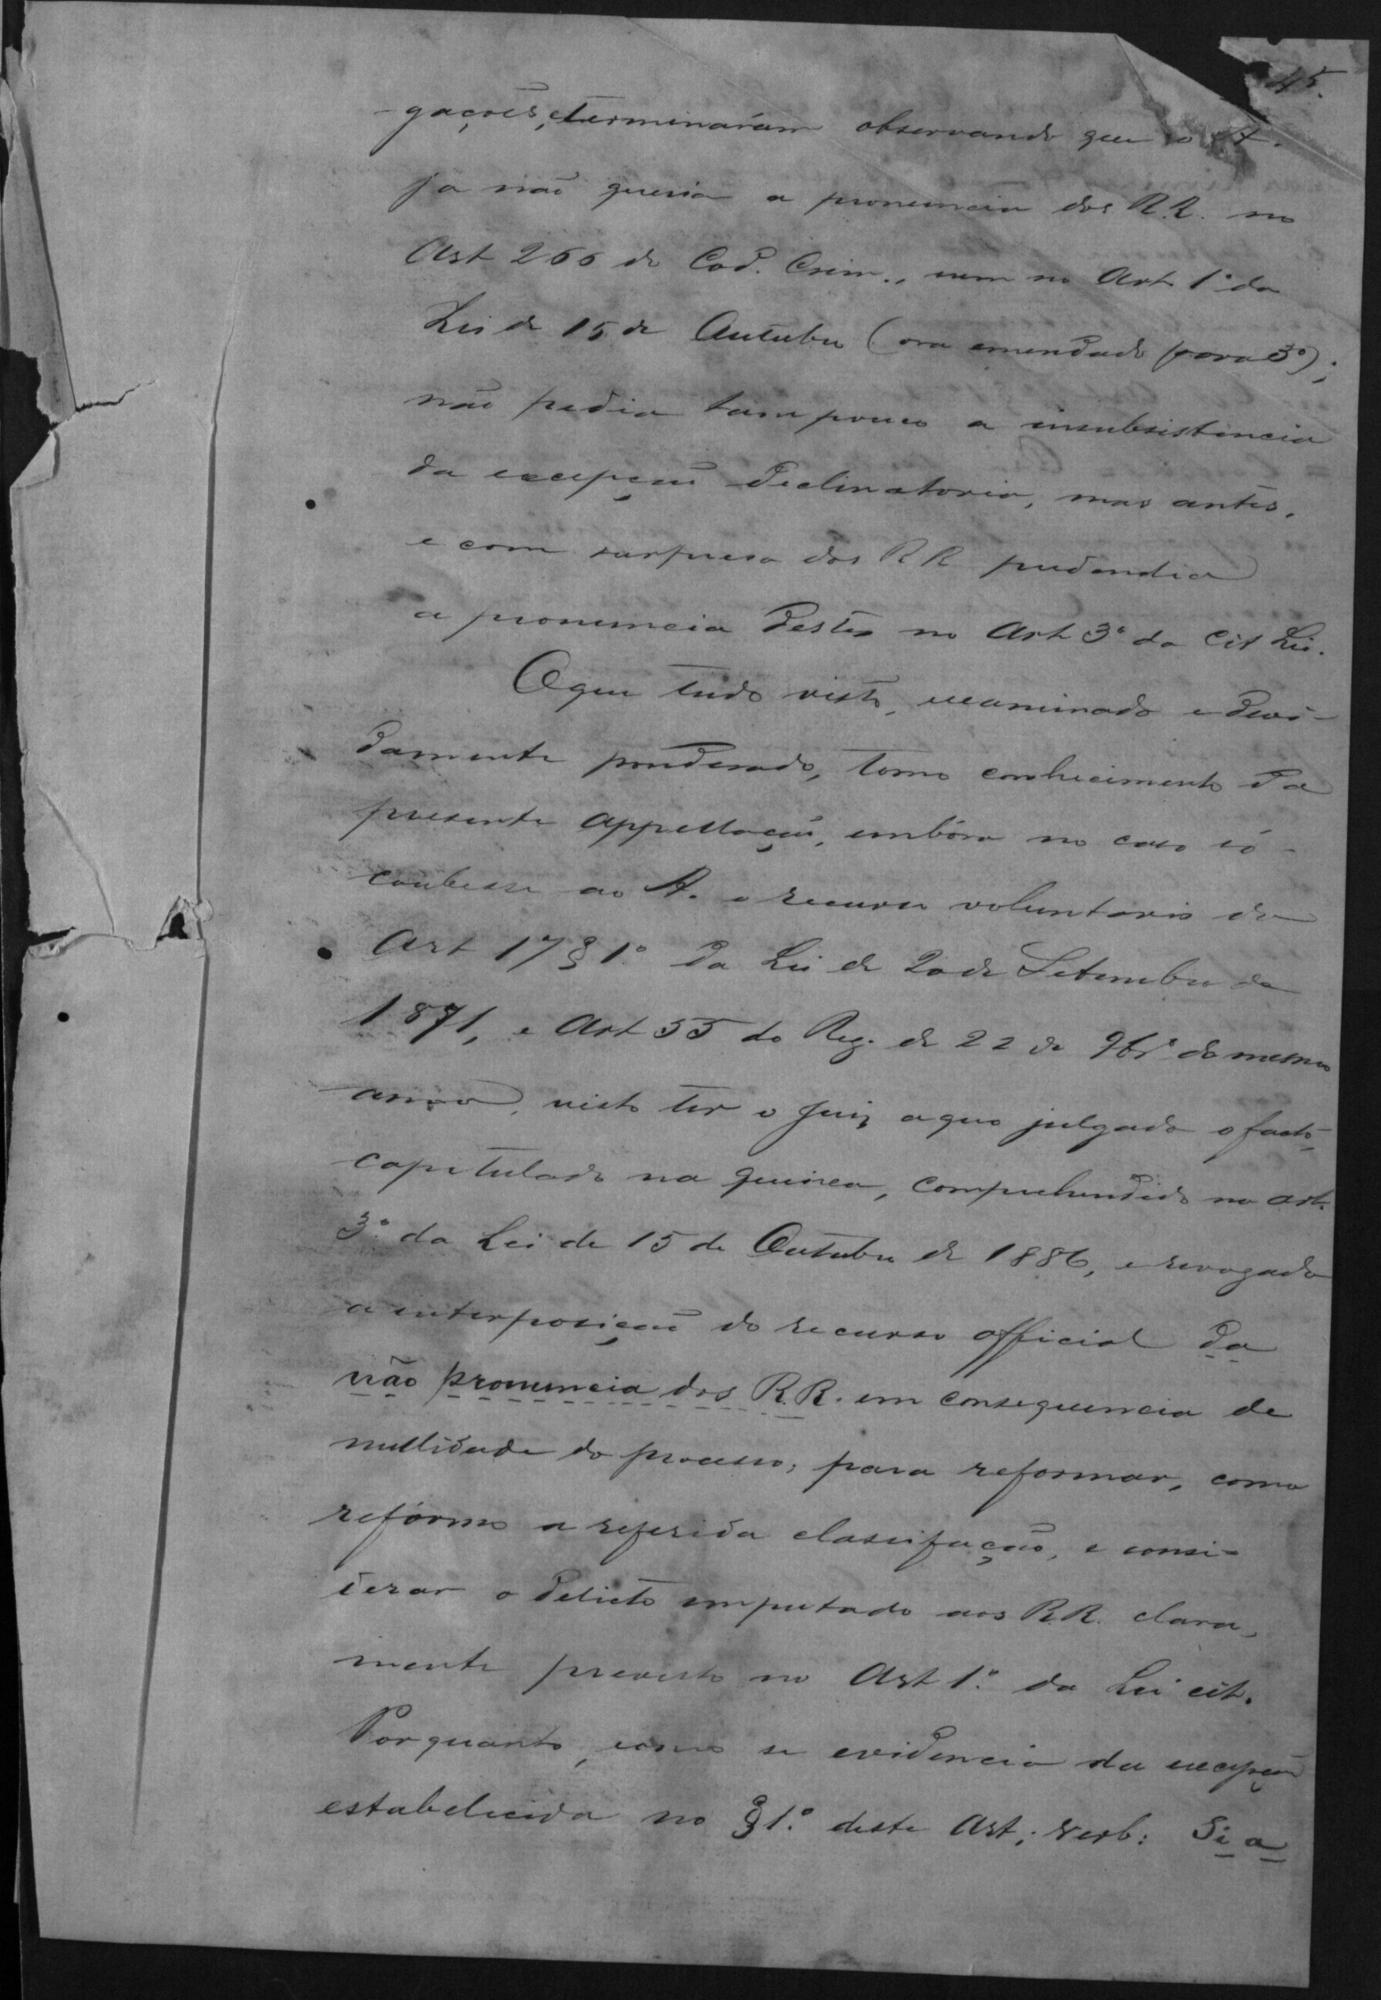 45.
gações, e terminaram observando que o A.
ja não queria a pronuncia dos R.R. no
Art 266 do Cod. Crim., nem no Art 1º da
Lei de 15 de Outubro (ora emendado para 3º);
não pedia tampouco a insubsistencia
da excepção declinatoria, mas antes,
e com surpresa dos RR pretendia
a pronuncia destes no Art 3º da cit Lei.
O que tudo visto, examinado e devi-
damente ponderado, tomo conhecimento da
presente appellação, embóra no caso só
coubesse ao A. o recurso voluntario do
Art 17 § 1º da Lei de 20 de Setembro de
1871, e Art 55 do Reg. de 22 de 9brº do mesmo
anno, visto ter o Juiz a quo julgado o facto,
capitulado na queixa, comprehendido no art.
3º da Lei de 15 de Outubro de 1886, e revogado
a interposição do recurso official da
não pronuncia dos R.R. em consequencia de
nullidade do processo; para reformar, como
refórmo a referida classificação, e consi-
derar o delicto imputado aos R.R. clara-
mente previsto no Art 1º da Lei cit.
Porquanto, como se evidencia da excepção
estabelecida no § 1º deste Art; verb: Si a